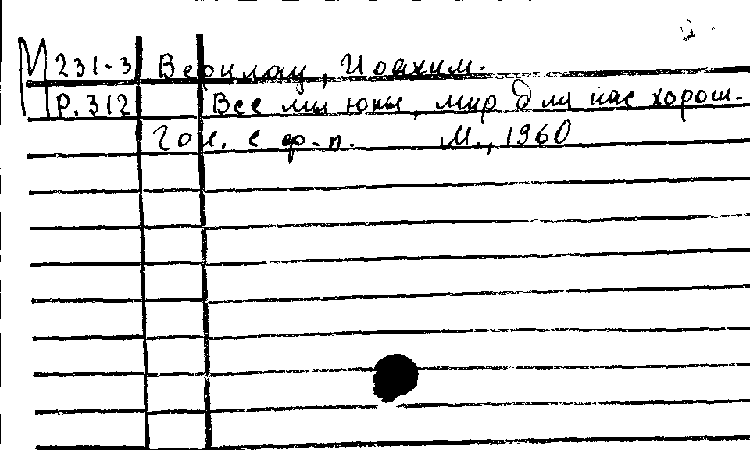 М 231-3 Верилау, Иоахим.
Р. 312 Все мы юны, мир для нас хорош.
Гол. с ф-п. М., 1960